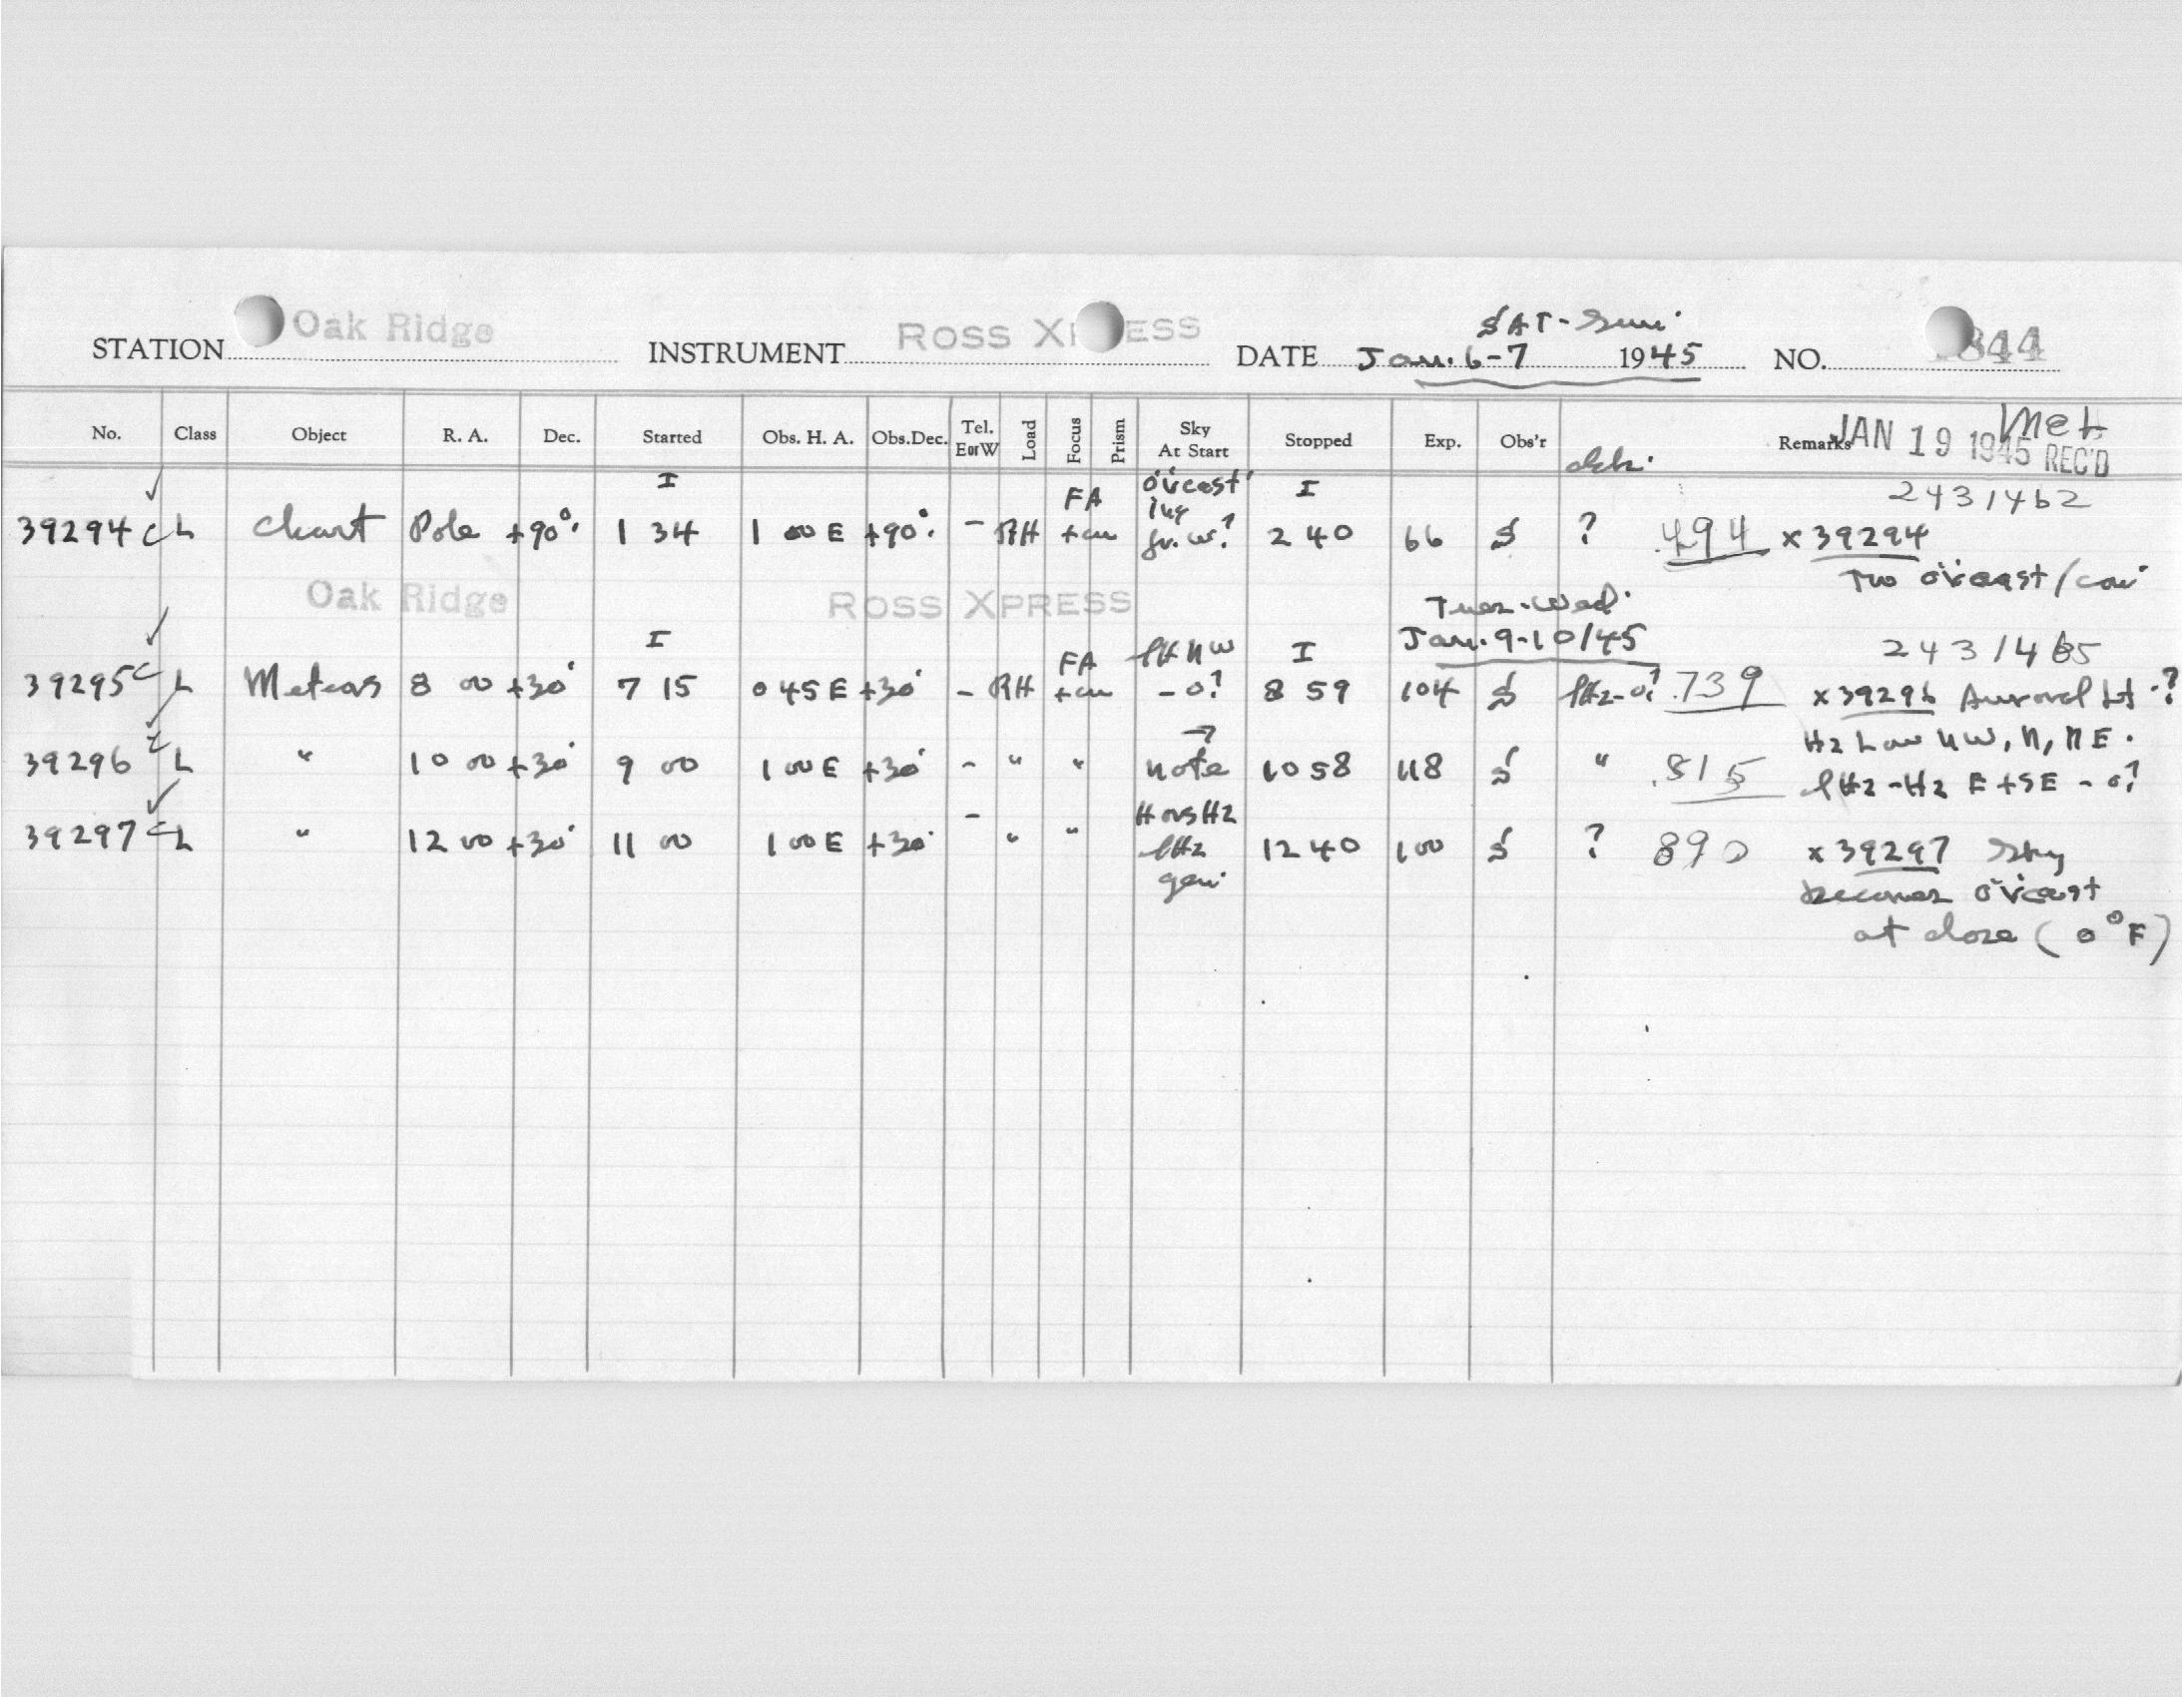 SAT - Sun.
STATION Oak Ridge INSTRUMENT ROSS XPRESS DATE Jan. 6-7 1945 NO. 844
No. Class Object R. A. Dec. Started Obs. H. A. Obs.Dec. Tel. E or W Load Focus Prism Sky At Start Stopped Exp. Obs'r Remarks
JAN 19 1945 REC'D
Met
I FA ov'cast I 2431462
39294 c L Chart Pole +90° 1 34 1 00 E +90° - RH + cm ing fr. W? 2 40 66 S ? .494 x 39294
Two ov'cast /
Oak Ridge ROSS XPRESS Tues.-Wed.
I FA NW I Jan. 9-10/45 2431465
39295 c L Meteors 8 00 +30° 7 15 0 45 E +30° - RH + cm - 0? 8 59 104 S lHz-0? .739 x 39296 Auroral Lt.?
Hz Low NW, N, NE.
39296 c L " 10 00 +30° 9 00 1 00 E +30° - " " → note 10 58 118 S " .815 lHz-Hz E + SE - 0?
39297 c L " 12 00 +30° 11 00 1 00 E +30° - " " Hz lHz gen. 12 40 100 S ? 890 x 39297 Sky
becomes ov'cast
at close (0°F)